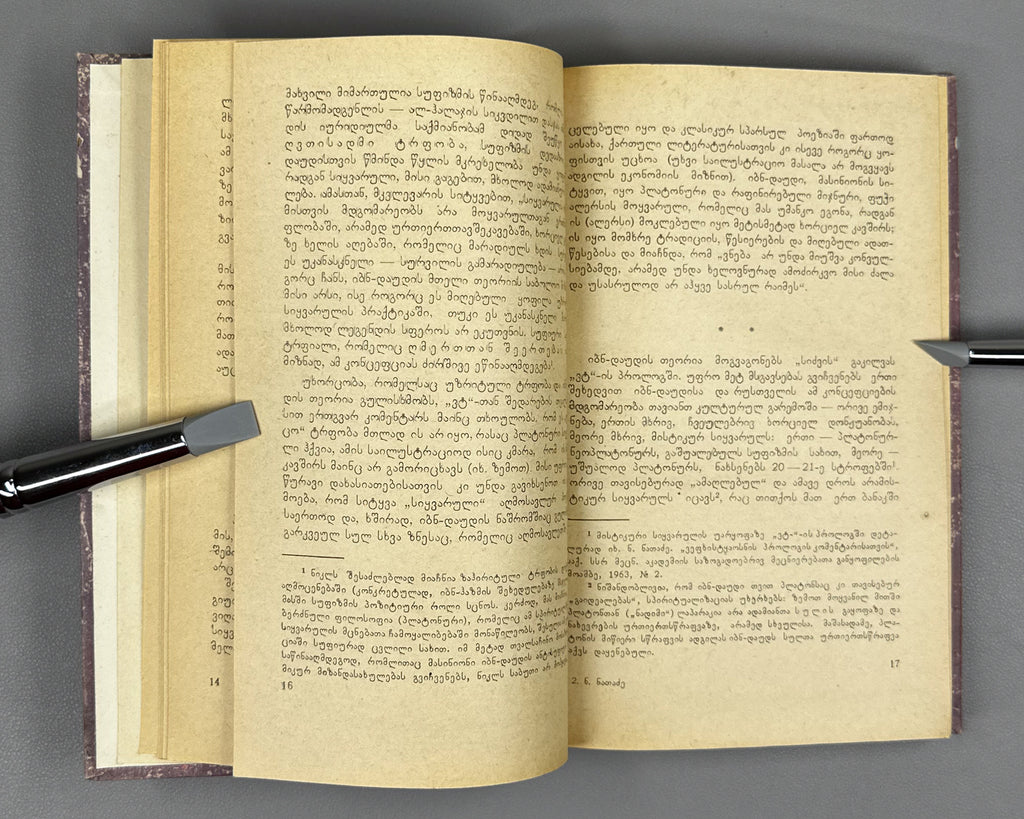 ლ
მხ
სა
ამ
ვარ
ზე
მო
ზი
გვა
მის
რო
თი
რო
მათ
ადა
აუც
მის,
შემი
არც
შ
გიუ
ვიღა
სიყვ
მელ
14
მახვილი მიმართულია სუფიზმის წინააღმდეგ,
წარმომადგენლის — ალ-ჰალაჯის სიკვდილით
დის იურიდიულმა საქმიანობამ დიდად
ღვთისადმი ტრფობა, სუფიზმის
დაუდისთვის წმინდა წყლის მკრეხელობა უნდა
რადგან სიყვარული, მისი გაგებით, მხოლოდ
ლება. ამასთან, მკვლევარის სიტყვებით,
მისთვის მდგომარეობს არა მოყვარულთაგან
ფლობაში, არამედ ურთიერთთავშეკავებაში,
ზე ხელის აღებაში, რომელიც მარადიულს ხდის
ეს უკანასკნელი — სურვილის გამარადიულება —
გორც ჩანს, იბნ-დაუდის მთელი თეორიის
მისი არსი, ისე როგორც ეს მიღებული ყოფილა
სიყვარულის პრაქტიკაში, თუკი ეს უკანასკნელი
მხოლოდ ლეგენდის სფეროს არ ეკუთვნის.
ტრფიალი, რომელიც ღმერთთან შეერთებას
მიზნად, ამ კონცეფციას ძირშივე ეწინააღმდეგება¹.
უხორცობა, რომელსაც უზრიტული ტრფობა და
დის თეორია გულისხმობს, „ვტ“-თან შედარების
სით ერთგვარ კომენტარს მაინც თხოულობს.
ცო“ ტრფობა მთლად ის არ იყო, რასაც
ლი ჰქვია, ამის საილუსტრაციოდ ისიც კმარა, რომ
კავშირს მაინც არ გამორიცხავს (იხ. ზემოთ). მისი
წურავი დახასიათებისათვის კი უნდა გავიხსენოთ
მოება, რომ სიტყვა „სიყვარული“ აღმოსავლურ
საერთოდ და, ხშირად, იბნ-დაუდის ნაშრომშიაც
გარკვეულ სულ სხვა ზნესაც, რომელიც
¹ ნიკლს შესაძლებლად მიაჩნია ზაჰირიტული ტრფობის
აღმოცენებაში (კონკრეტულად, იბნ-ჰაზმის შეხედულებაზე
მასში სუფიზმის პოზიტიური როლი სცნოს. კერძოდ, მას
ბერძნული ფილოსოფია (პლატონური), რომელიც ამ
სიყვარულის მცნებათა ჩამოყალიბებაში მონაწილეობს,
ციაში სუფიურად ცვლილი სახით. იმ მეტად თვალსაჩინო
საწინააღმდეგოდ, რომლითაც მასინიონი იბნ-დაუდის
მიკურ მიზანდასახულებას გვიჩვენებს, ნიკლს საბუთი არ
16
ცელებული იყო და კლასიკურ სპარსულ პოეზიაში ფართოდ
აისახა, ქართული ლიტერატურისათვის კი ისევე როგორც ყო-
ფისთვის უცხოა (უხვი საილუსტრაციო მასალა არ მოგვყავს
ადგილის ეკონომიის მიზნით). იბნ-დაუდი, მასინიონის სი-
ტყვით, იყო პლატონური და რაფინირებული მიჯნური, ფუჭი
ალერსის მოყვარული, რომელიც მას უმანკო ეგონა, რადგან
ის (ალერსი) მოკლებული იყო მეტისმეტად ხორციელ კავშირს;
ის იყო მომხრე ტრადიციის, წესიერების და მიღებული ადათ-
წესებისა და მიაჩნდა, რომ „ვნება არ უნდა მიუშვა კონვულ-
სიებამდე, არამედ უნდა ხელოვნურად ამოძირკვო მისი ძალა
და უსასრულოდ არ აჰყვე სასრულ რაიმეს“.
* *
იბნ-დაუდის თეორია მოგვაგონებს „სიძვის“ გაკილვას
„ვტ“-ის პროლოგში. უფრო მეტ მსგავსებას გვიჩვენებს ერთი
შეხედვით იბნ-დაუდისა და რუსთველის ამ კონცეფციების
მდგომარეობა თავიანთ კულტურულ გარემოში — ორივე ემიჯ-
ნება, ერთის მხრივ, ჩვეულებრივ ხორციელ დონჟუანობას,
მეორე მხრივ, მისტიკურ სიყვარულს: ერთი — პლატონურ-
ნეოპლატონურს, გაშუალებულს სუფიზმის სახით, მეორე —
უშუალოდ პლატონურს, ნახსენებს 20—21-ე სტროფებში¹.
ორივე თავისებურად „ამაღლებულ“ და ამავე დროს არამის-
ტიკურ სიყვარულს იცავს², რაც თითქოს მათ ერთ ბანაკში
¹ მისტიკური სიყვარულის უარყოფაზე „ვტ-“-ის პროლოგში დეტა-
ლურად იხ. ნ. ნათაძე, „ვეფხისტყაოსნის პროლოგის კომენტარისათვის“,
საქ. სსრ მეცნ. აკადემიის საზოგადოებრივ მეცნიერებათა განყოფილების
მოამბე, 1963, № 2.
² ნიშანდობლივია, რომ იბნ-დაუდი თვით პლატონსაც კი თავისებურ
„გაიდეალებას“, სპირიტუალიზაციას უხერხებს: ზემოთ მოყვანილ მითში
პლატონთან („ნადიმი“) ლაპარაკია არა ადამიანთა სულის გაყოფაზე და
ნახევრების ურთიერთსწრაფვაზე, არამედ სხეულისა. მაშასადამე, პლა-
ტონის მიწიერი სწრაფვის ადგილას იბნ-დაუდს სულთა ურთიერთსწრაფვა
აქვს დაყენებული.
17
2. ნ. ნათაძე